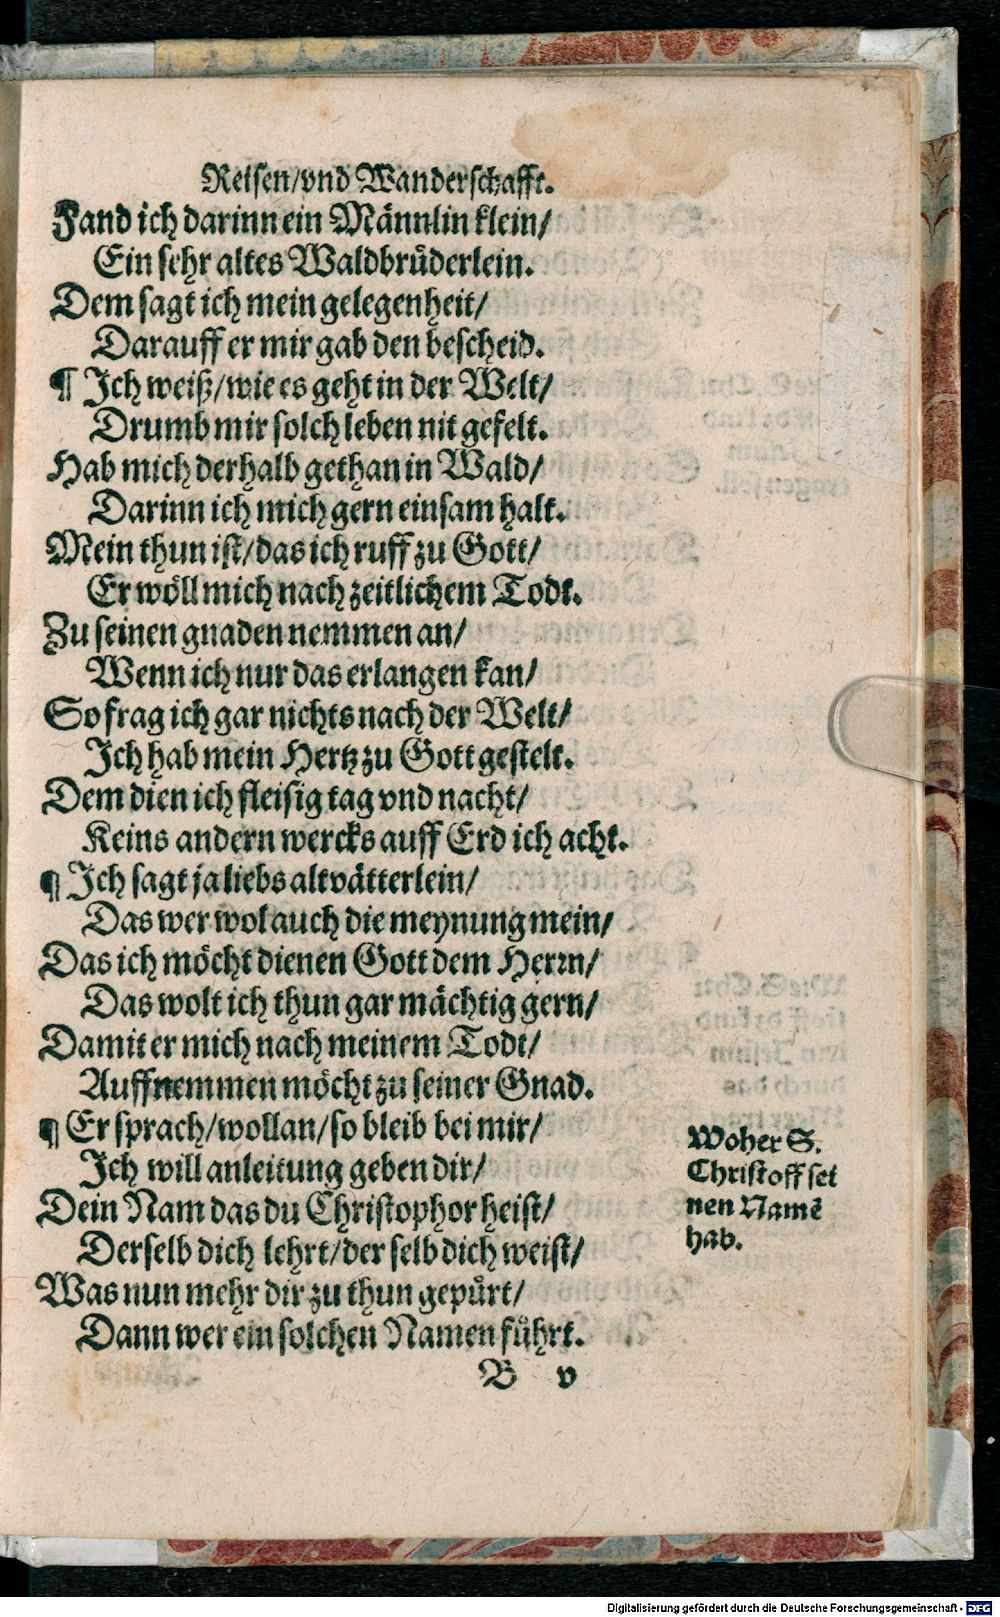 Reisen/vnd Wanderschafft.
Fand ich darinn ein Männlin klein/
Ein sehr altes Waldbrüderlein.
Dem sagt ich mein gelegenheit/
Darauff er mir gab den bescheid.
¶ Ich weiß/wie es geht in der Welt/
Drumb mir solch leben nit gefelt.
Hab mich derhalb gethan in Wald/
Darinn ich mich gern einsam halt.
Mein thun ist/das ich ruff zu Gott/
Er wöll mich nach zeitlichem Todt.
Zu seinen gnaden nemmen an/
Wenn ich nur das erlangen kan/
So frag ich gar nichts nach der Welt/
Ich hab mein Hertz zu Gott gestelt.
Dem dien ich fleisig tag vnd nacht/
Keins andern wercks auff Erd ich acht.
¶ Ich sagt ja liebs altvätterlein/
Das wer wol auch die meynung mein/
Das ich möcht dienen Gott dem Herrn/
Das wolt ich thun gar mächtig gern/
Damit er mich nach meinem Todt/
Auffnemmen möcht zu seiner Gnad.
¶ Er sprach/wollan/so bleib bei mir/
Ich will anleitung geben dir/
Dein Nam das du Christophor heist/
Derselb dich lehrt/der selb dich weist/
Was nun mehr dir zu thun gepürt/
Dann wer ein solchen Namen führt.
B v
Woher S.
Christoff sei
nen Namē
hab.
Digitalisierung gefördert durch die Deutsche Forschungsgemeinschaft - DFG